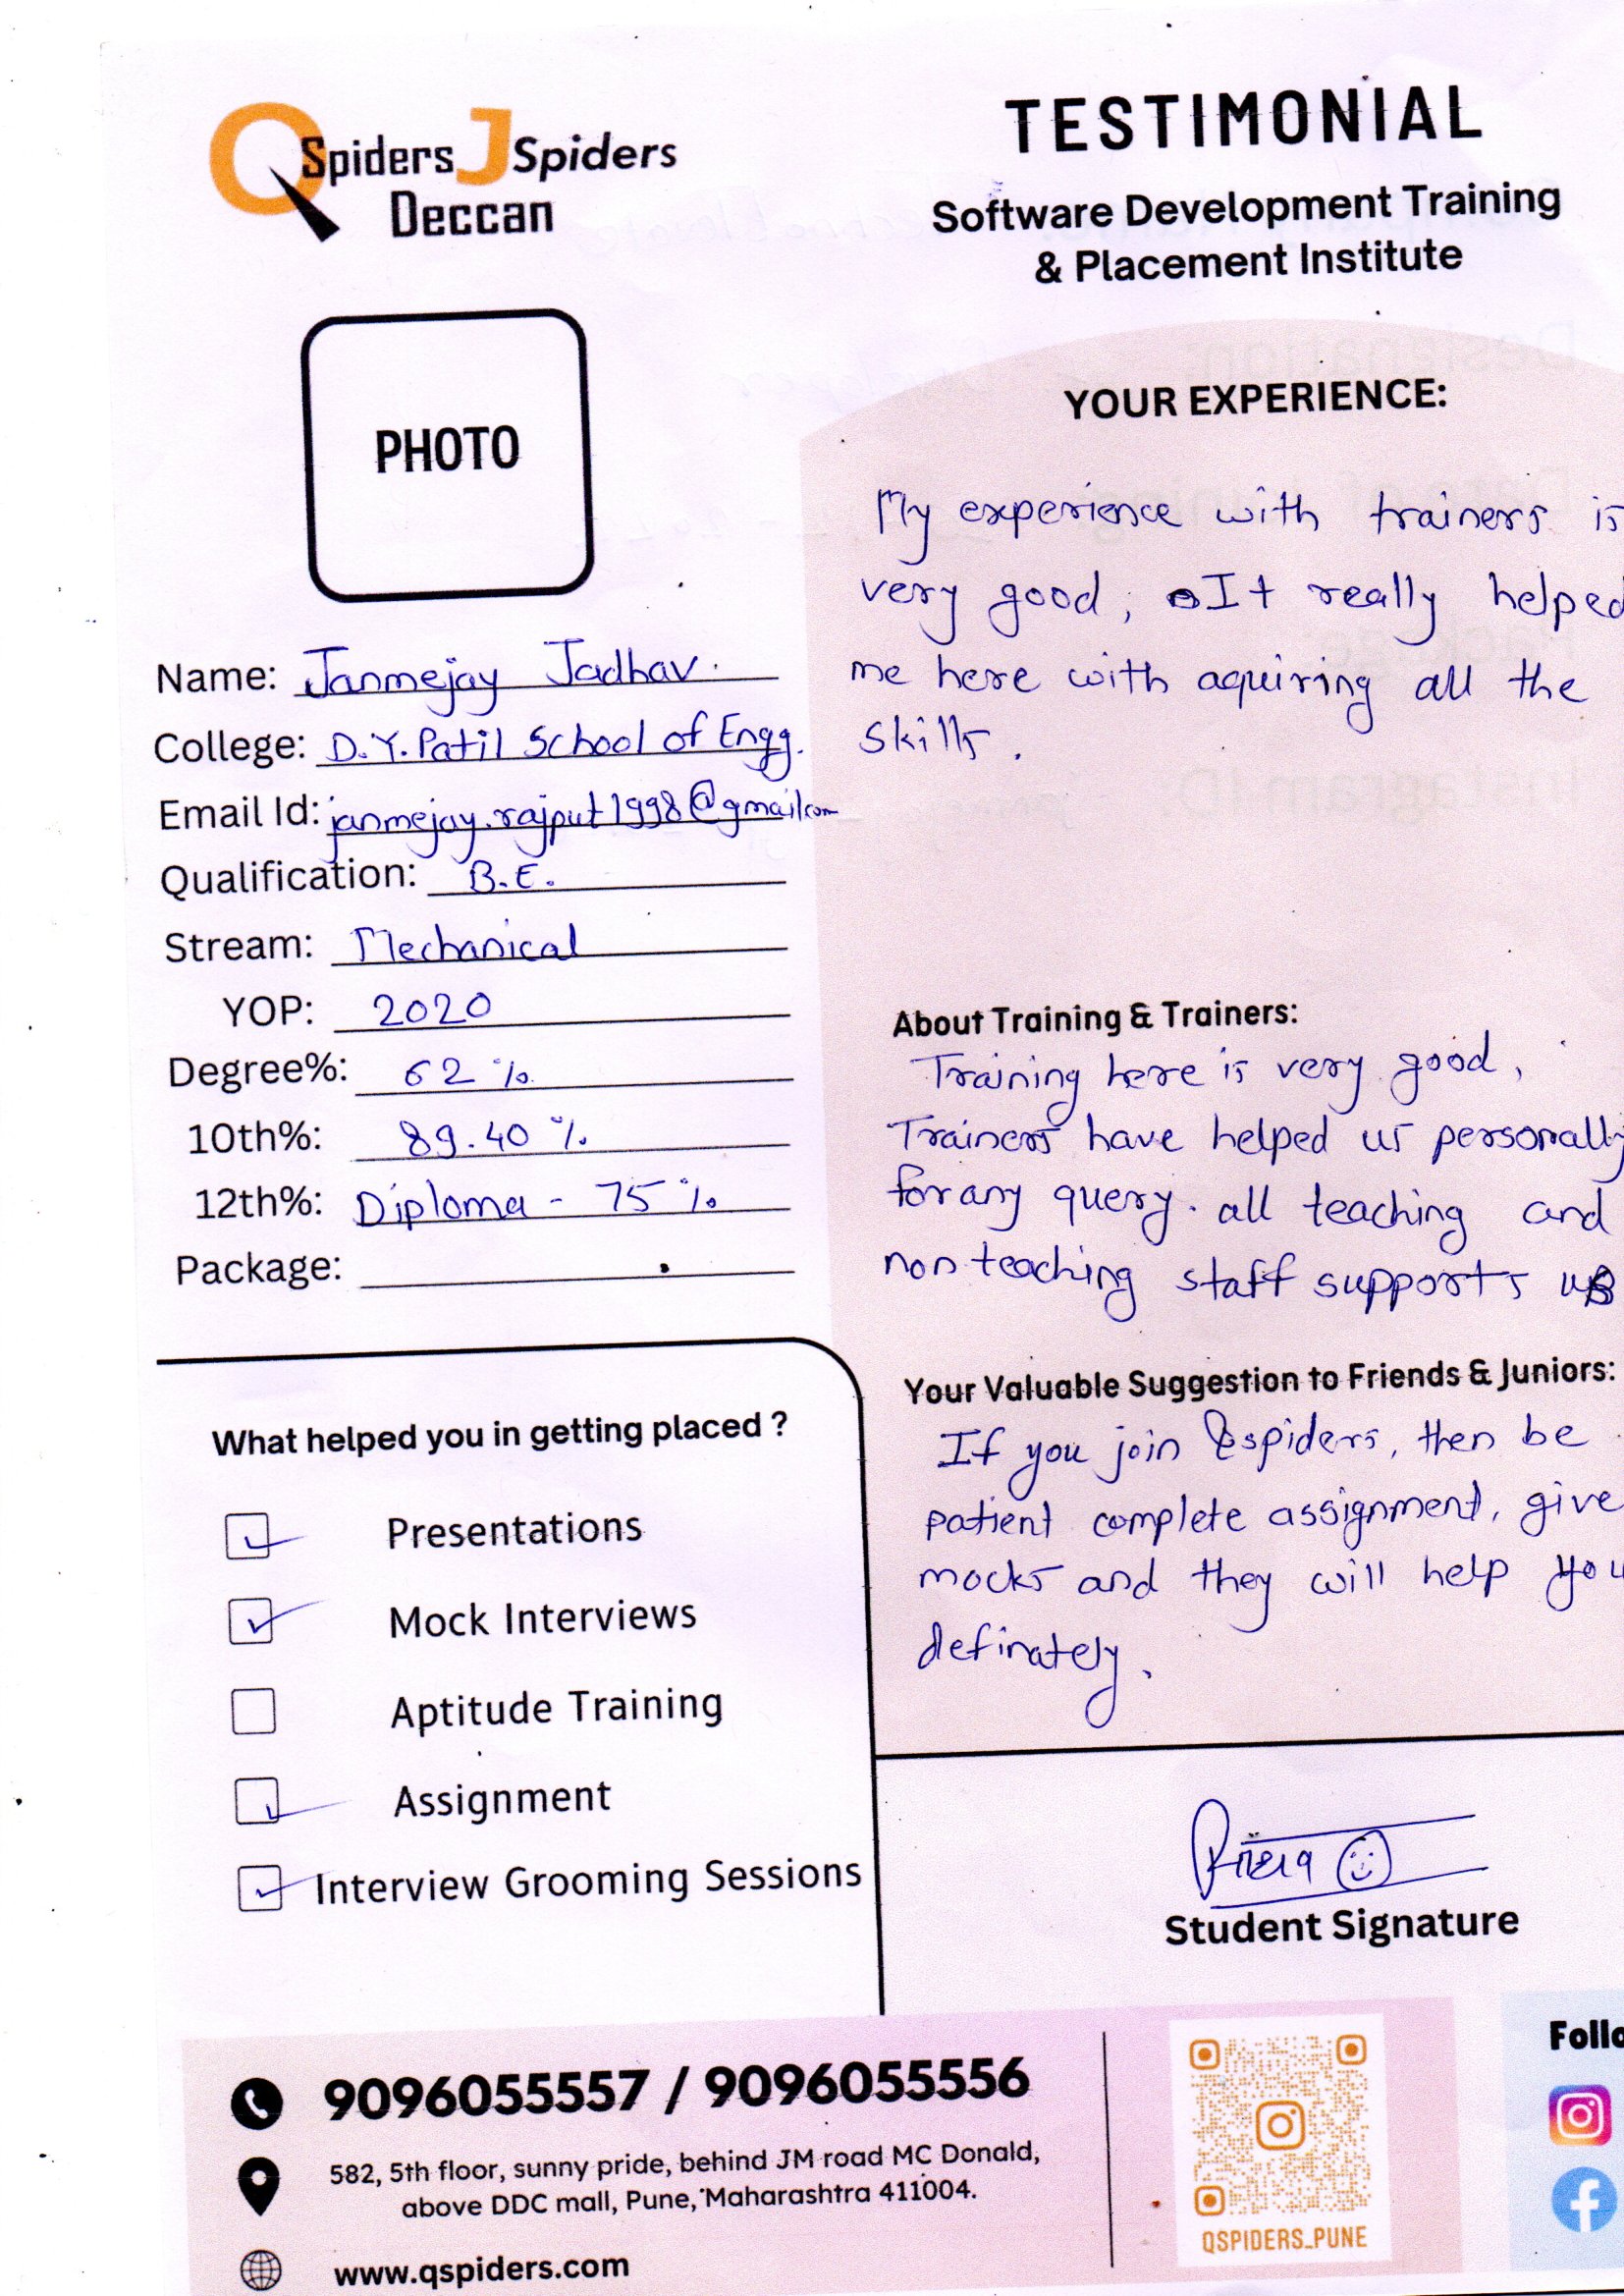 QSpiders JSpiders
Deccan
TESTIMONIAL
Software Development Training
& Placement Institute
PHOTO
Name: Janmejay Jadhav.
College: D.Y. Patil School of Engg.
Email Id: janmejay.rajput1998@gmail.com
Qualification: B.E.
Stream: Mechanical
YOP: 2020
Degree%: 62 %
10th%: 89.40 %
12th%: Diploma - 75 %
Package:
What helped you in getting placed ?
Presentations
Mock Interviews
Aptitude Training
Assignment
Interview Grooming Sessions
YOUR EXPERIENCE:
My experience with trainers is
very good, It really helped
me here with aquiring all the
skills.
About Training & Trainers:
Training here is very good,
Trainers have helped us personally
for any query. all teaching and
non teaching staff supports us
Your Valuable Suggestion to Friends & Juniors:
If you join Qspiders, then be
patient complete assignment, give
mocks and they will help you
definately.
Student Signature
9096055557 / 9096055556
582, 5th floor, sunny pride, behind JM road MC Donald,
above DDC mall, Pune, Maharashtra 411004.
www.qspiders.com
QSPIDERS_PUNE
Follo